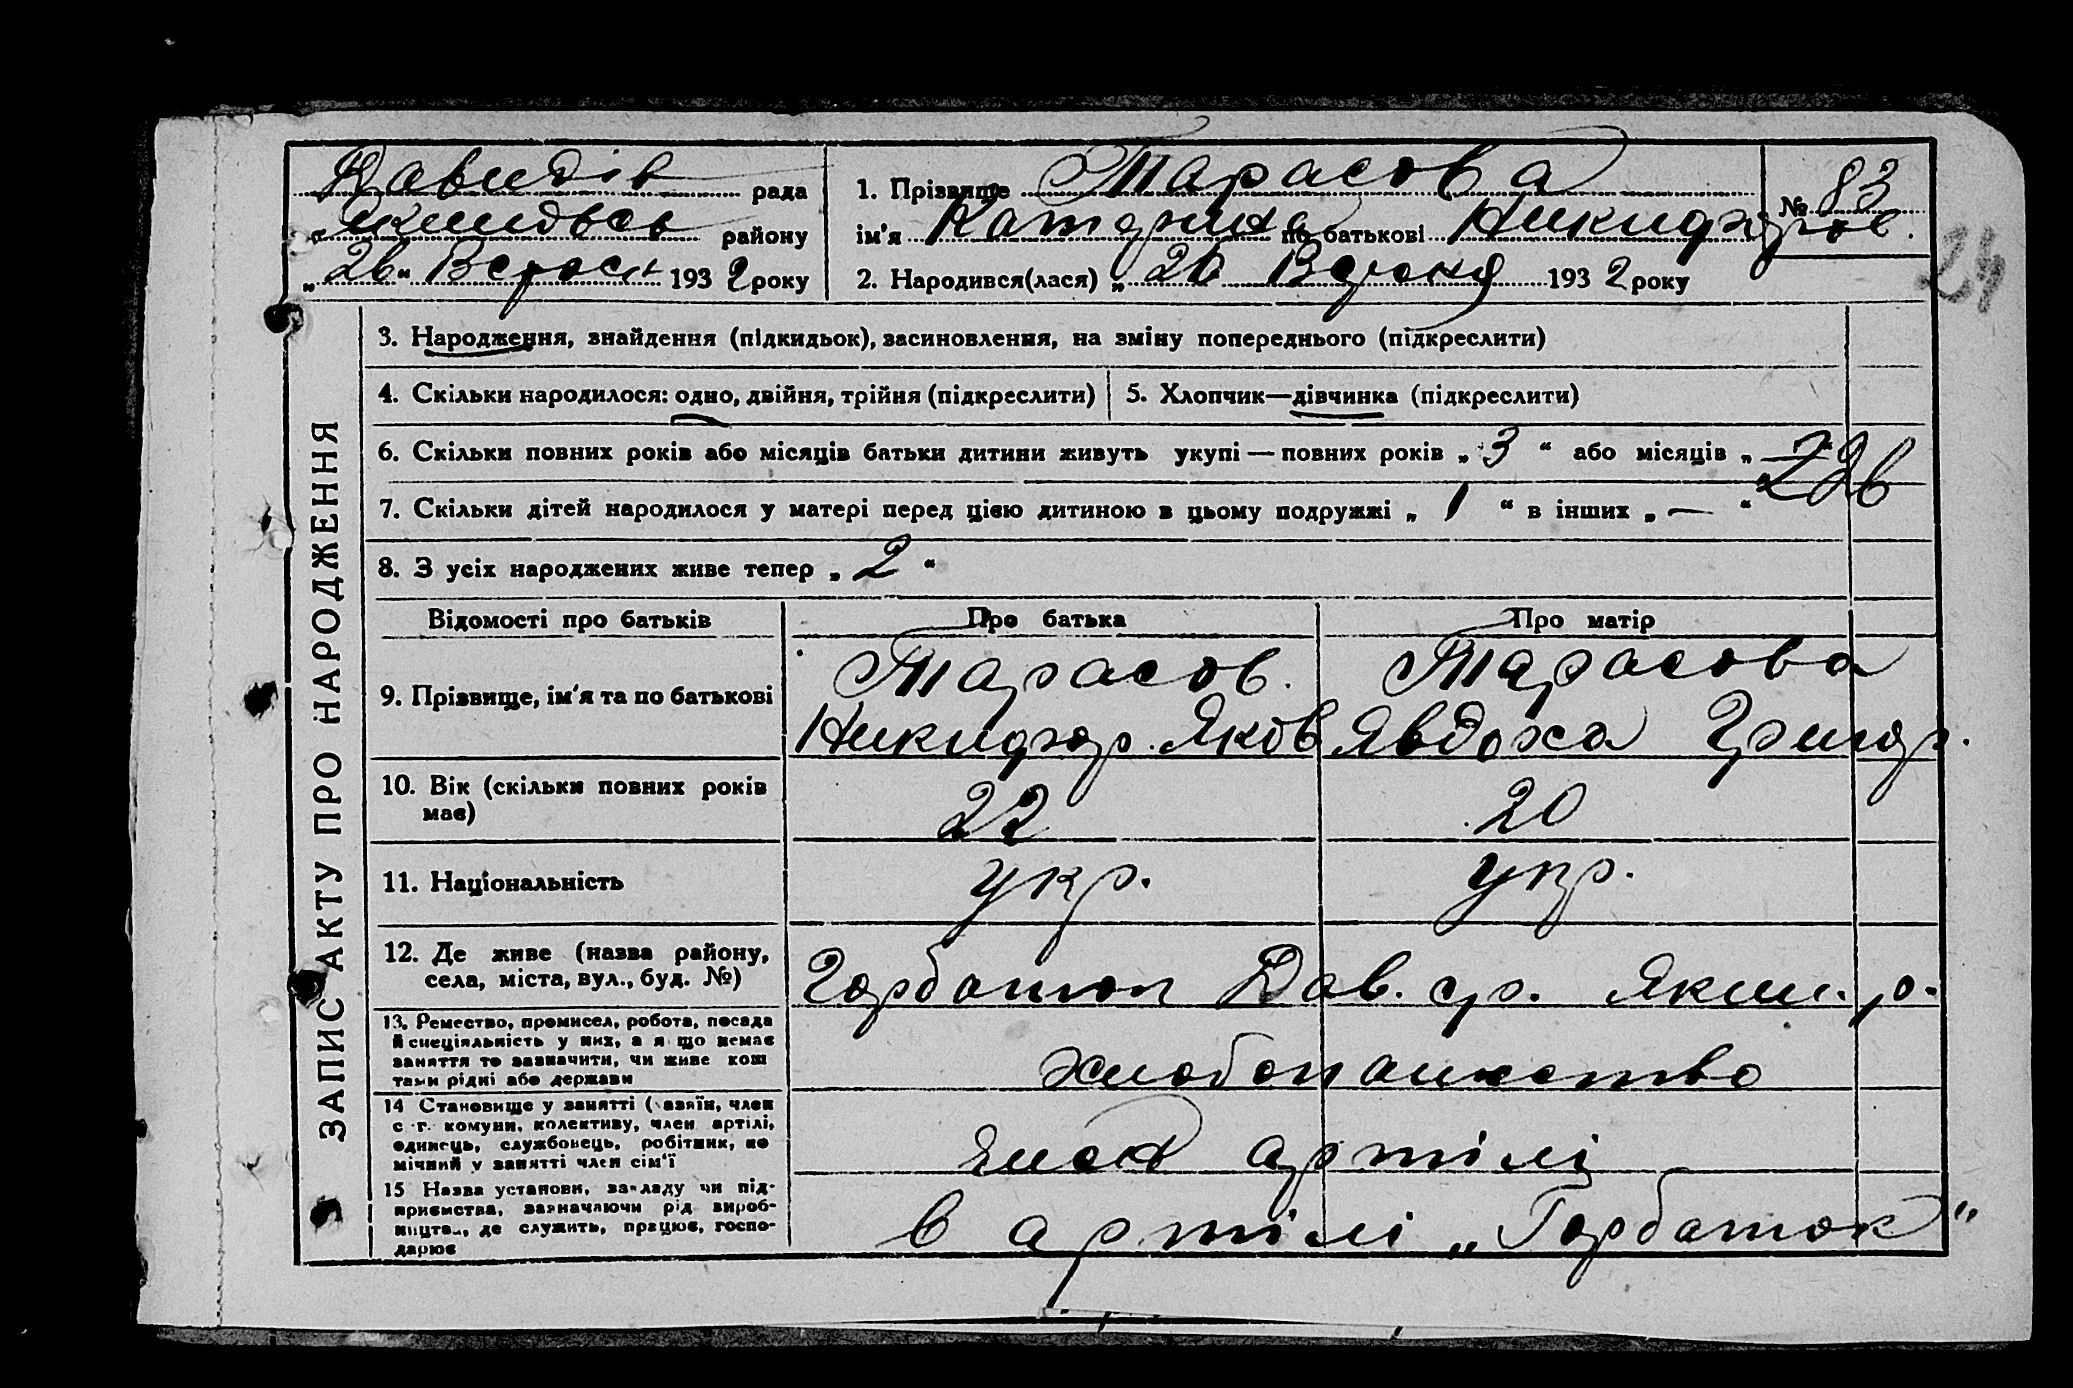 Давидів рада
Якимовсь району
„26“ Верос. 1932 року
1. Прізвище Тарасова
ім'я Катерина по батькові Никифоров.
№ 83
2. Народився(лася) „26 Вересня 1932 року
24
ЗАПИС АКТУ ПРО НАРОДЖЕННЯ
3. Народження, знайдення (підкидьок), засиновлення, на зміну попереднього (підкреслити)
4. Скільки народилося: одно, двійня, трійня (підкреслити)
5. Хлопчик—дівчинка (підкреслити)
6. Скільки повних років або місяців батьки дитини живуть укупі — повних років „3“ або місяців „
7. Скільки дітей народилося у матері перед цією дитиною в цьому подружжі „1“ в інших „—“
8. З усіх народжених живе тепер „2“
Відомості про батьків
Про батька
Про матір
9. Прізвище, ім'я та по батькові
Тарасов.
Никифор. Яков
Тарасова
Явдоха Григор.
10. Вік (скільки повних років
має)
22
20
11. Національність
укр.
укр.
12. Де живе (назва району,
села, міста, вул., буд. №)
Горбатюк Дав. с/р. Яким. р.
13. Ремество, промисел, робота, посада
й спеціяльність у них, а я що немає
заняття то зазначити, чи живе кош
тами рідні або держави
хлебопашество
14 Становище у занятті (хазяїн, член
с-г. комуни, колективу, член артілі,
одинець, службовець, робітник, по
мічний у занятті член сім'ї
член артілі
15 Назва установи, закладу чи під-
приємства, зазначаючи рід вироб-
ництва, де служить, працює, госпо-
дарює
в артілі „Горбатюк“